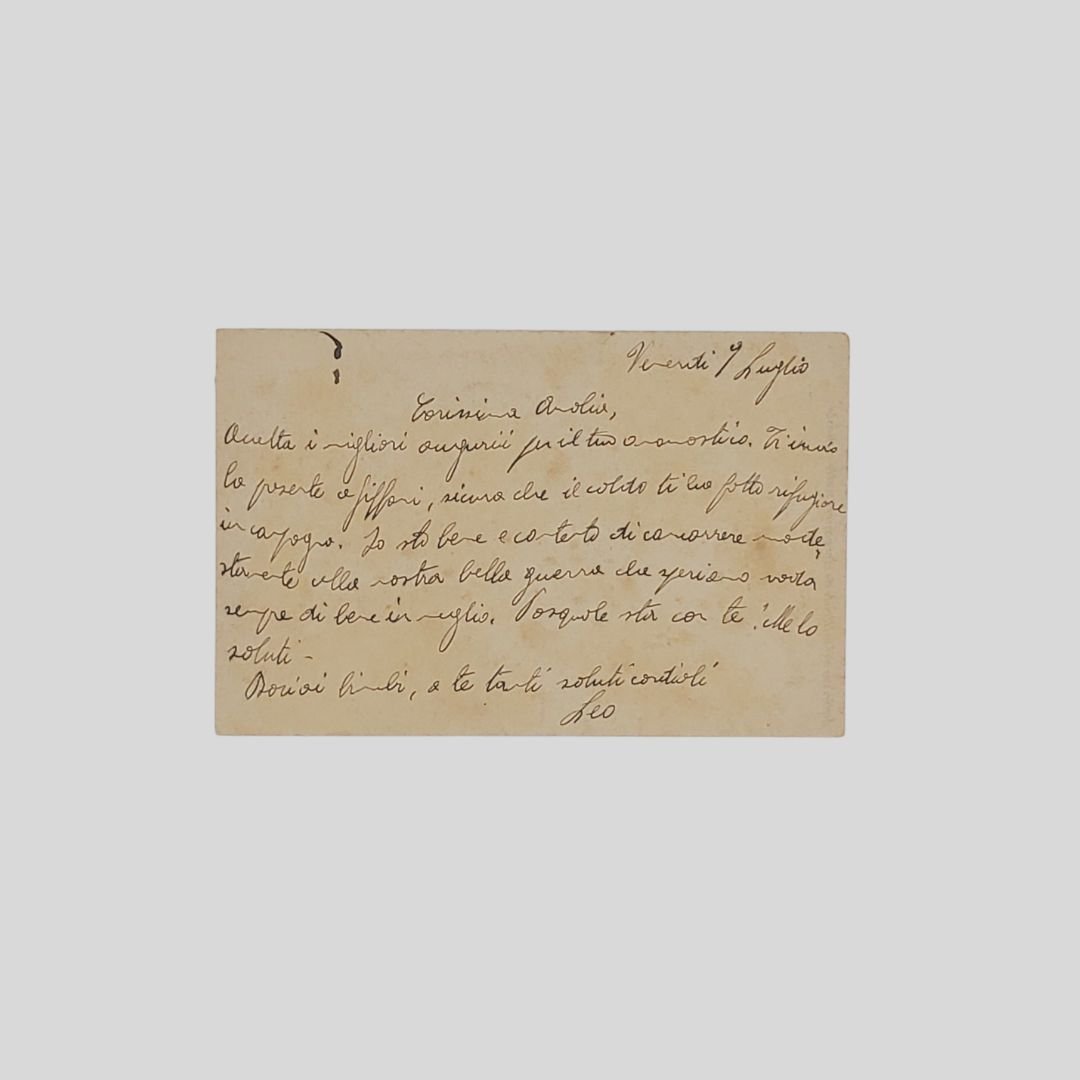 Venerdì 9 Luglio
Carissima Amalia,
Accetta i migliori augurii per il tuo onomastico. Ti invio
la presente a Giffoni, sicura che il caldo ti ha fatto rifugiare
in campagna. Io sto bene e contento di concorrere mode
stamente alla nostra bella guerra che speriamo vada
sempre di bene in meglio. Pasquale sta con te? Me lo
saluti -
Baci ai bimbi, a te tanti saluti cordiali
Leo